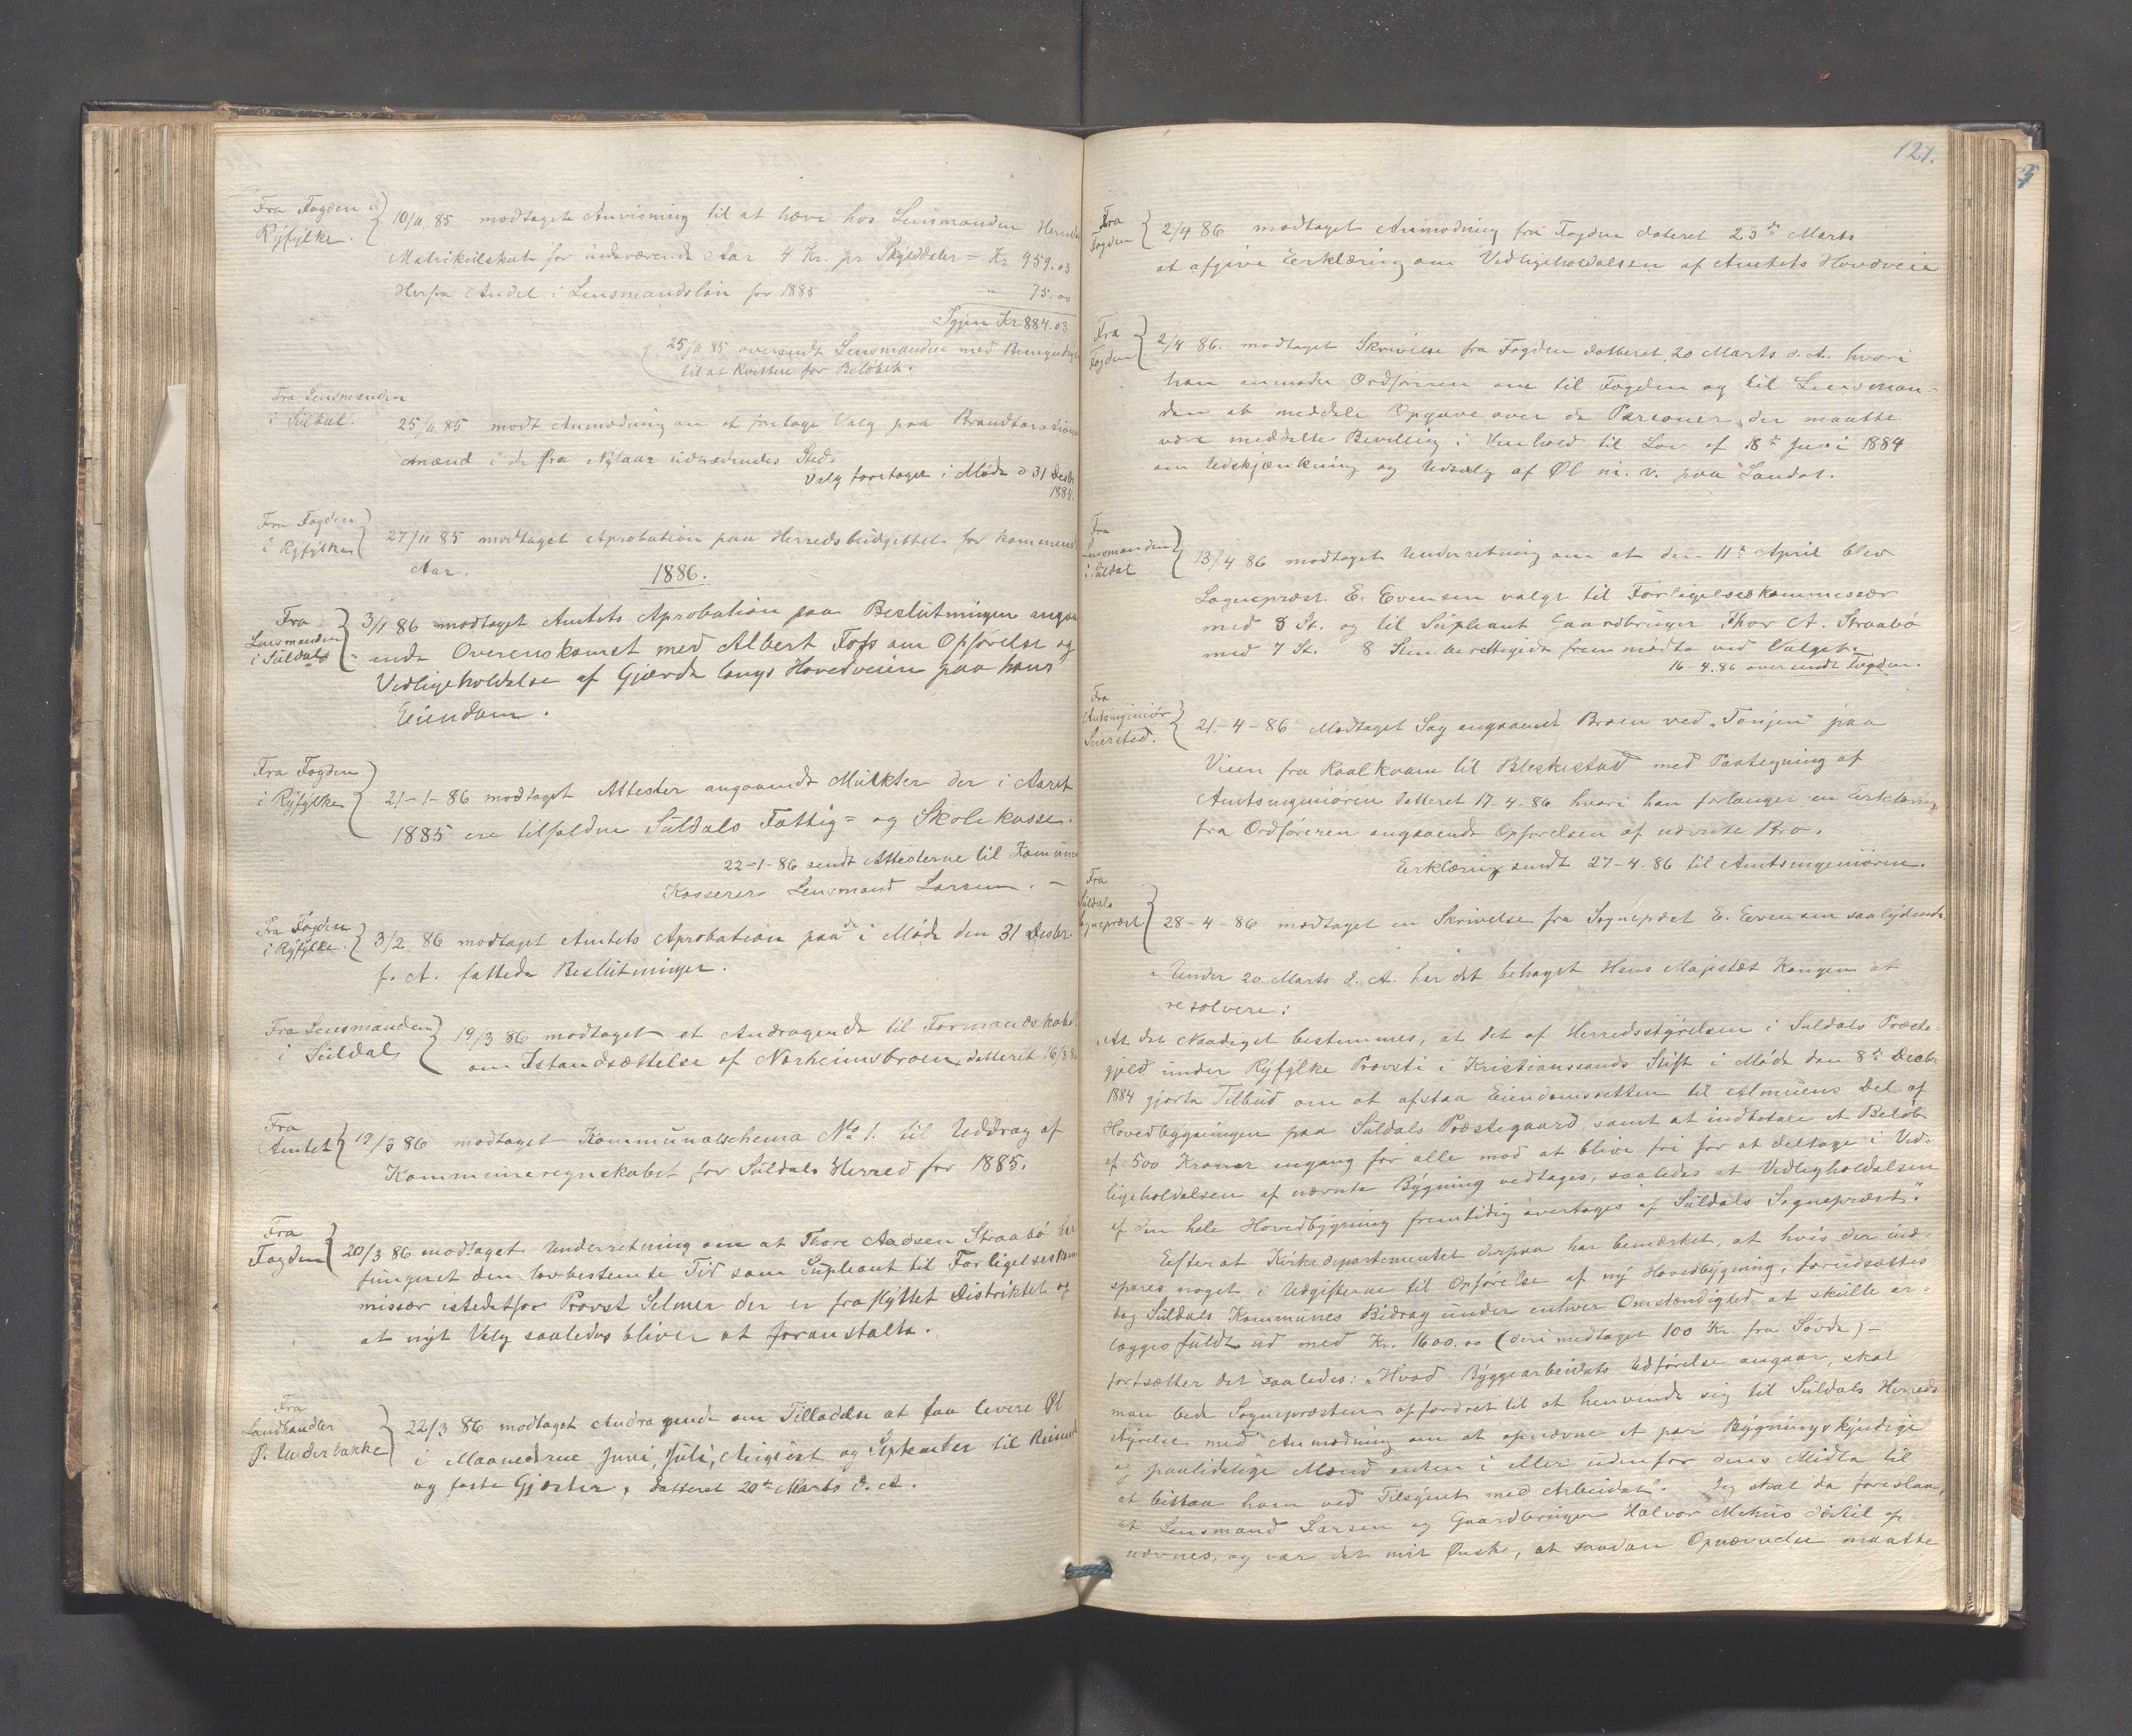 Fra Fogden i
Ryfylke.
10/11 85 modtaget Anvisning til at hæve hos Lensmanden Herreds
Matrikulskat for indeværende Aar 4 Kr. pr Skylddaler = Kr 959.03
Herfra Andel i Lensmandsløn for 1885 " 75.00
Igjen Kr. 884.03
25/11 85 oversendt Lensmanden med Bemyndig
til at kvittere for Beløbet.
Fra Lensmanden
i Suldal.
25/11 85 modt Anmodning om at foretage Valg paa Brandtaxations
mænd i de fra Nytaar udtrædendes Sted.
Valg foretaget i Møde d 31 Decbr
1885.
Fra Fogden
i Ryfylke
27/11 85 modtaget Aprobation paa Herredsbudgettet for kommende
Aar.
1886.
Fra
Lensmanden
i Suldal
3/1 86 modtaget Amtets Aprobation paa Beslutningen angaa
ende Overenskomst med Albert Foss om Opførelse og
Vedligeholdelse af Gjærde langs Hovedveien paa hans
Eiendom.
Fra Fogden
i Ryfylke
21-1-86 modtaget Attester angaaende Mulkter der i Aaret
1885 ere tilfaldne Suldals Fattig= og Skolekasse.
22-1-86 sendt Attesterne til Kommune
Kasserer Lensmand Larsen. —
Fra Fogden
i Ryfylke.
3/2 86 modtaget Amtets Aprobation paa de i Møde den 31 Decbr.
f. A. fattede Beslutninger.
Fra Lensmanden
i Suldal
19/3 86 modtaget et Andragende til Formandskabet
om Istandsættelse af Norheimsbroen, datteret 16/3 86
Fra
Amtet
19/3 86 modtaget Kommunalschema No 1. til Uddrag af
Kommuneregnskabet for Suldals Herred for 1885.
Fra
Fogden
20/3 86 modtaget Underretning om at Thore Aadsen Straabø har
fungeret den lovbestemte Tid som Supleant til Forligelseskom
missær istedetfor Provst Selmer der er fraflyttet Distriktet og
at nyt Valg saaledes bliver at foranstalte.
Fra
Landhandler
P. Underbakke
22/3 86 modtaget Andragende om Tilladelse at faa levere Øl
i Maanederne Juni, Juli, August og September til Reisende
og faste Gjæster, datteret 20de Marts d. A.
121.
Fra
Fogden
2/4 86 modtaget Anmodning fra Fogden dateret 23de Marts
at afgive Erklæring om Vedligeholdelsen af Amtets Hovedveie
Fra
Fogden
2/4 86. modtaget Skrivelse fra Fogden datteret 20 Marts d. A. hvori
han anmoder Ordføreren om til Fogden og til Lensman-
den at meddele Opgave over de Personer der maatte
være meddelte Bevilling i Henhold til Lov af 18de Juni 1884
om Udskjænkning og Udsalg af Øl m. v. paa Landet.
Fra
Lensmanden
i Suldal
13/4 86 modtaget Underretning om at den 11te April blev
Sognepræst E. Evensen valgt til Forligelseskommessær
med 8 St. og til Supleant Gaardbruger Thor A. Straabø
med 7 St. 8 Stemberettigede fremmødte ved Valget.
16-4.86 oversendt Fogden.
Fra
Amtsingeniør
Seiersted.
21-4-86 Modtaget Sag angaaende Broen ved "Tonjen" paa
Veien fra Roalkvam til Bleskestad med Paategning af
Amtsingeniøren datteret 17-4-86 hvori han forlanger en Erklæring
fra Ordføreren angaaende Opførelsen af nævnte Bro.
Erklæring sendt 27-4.86 til Amtsingeniøren.
Fra
Suldals
Sognepræst
28-4-86 modtaget en Skrivelse fra Sognepræst E. Evensen saalydende
"Under 20 Marts d. A. har det behaget Hans Majestæt Kongen at
resolvere:
"At det Naadigst bestemmes, at det af Herredsstyrelsen i Suldals Præste-
gjeld under Ryfylke Provsti i Kristianssands Stift i Møde den 8de Decbr
1884 gjorte Tilbud om at afstaa Eiendomsretten til Almuens Del af
Hovedbygningen paa Suldals Præstegaard, samt at indbetale et Beløb
af 500 Kroner engang for alle mod at blive fri for at deltage i Ved-
ligeholdelsen af nævnte Bygning vedtages, saaledes at Vedligeholdelsen
af den hele Hovedbygning fremtidig overtages af Suldals Sognepræst."
Efterat Kirkedepartementet derpaa har bemærket, at hvis der ind-
spares noget i Udgifterne til Opførelse af ny Hovedbygning, forudsættes
dog Suldals Kommunes Bidrag under enhver Omstændighed at skulle er-
lægges fuldt ud med Kr. 1600.00 (deri medtaget 100 Kr. fra Søvde) —
fortsætter det saaledes: "Hvad Byggearbeidets Udførelse angaar, skal
man bede Sognepræsten opfordret til at henvende sig til Suldals Herreds
styrelse med Anmodning om at opnævne et par Bygningskyndige
og paalidelige Mænd enten i eller udenfor dens Midte til
at bistaa ham ved Tilsynet med Arbeidet". Jeg skal da foreslaa,
at Lensmand Larsen og Gaardbruger Halvor Mehus dertil op-
nævnes, og var det mit Ønske, at saadan Opnævnelse maatte